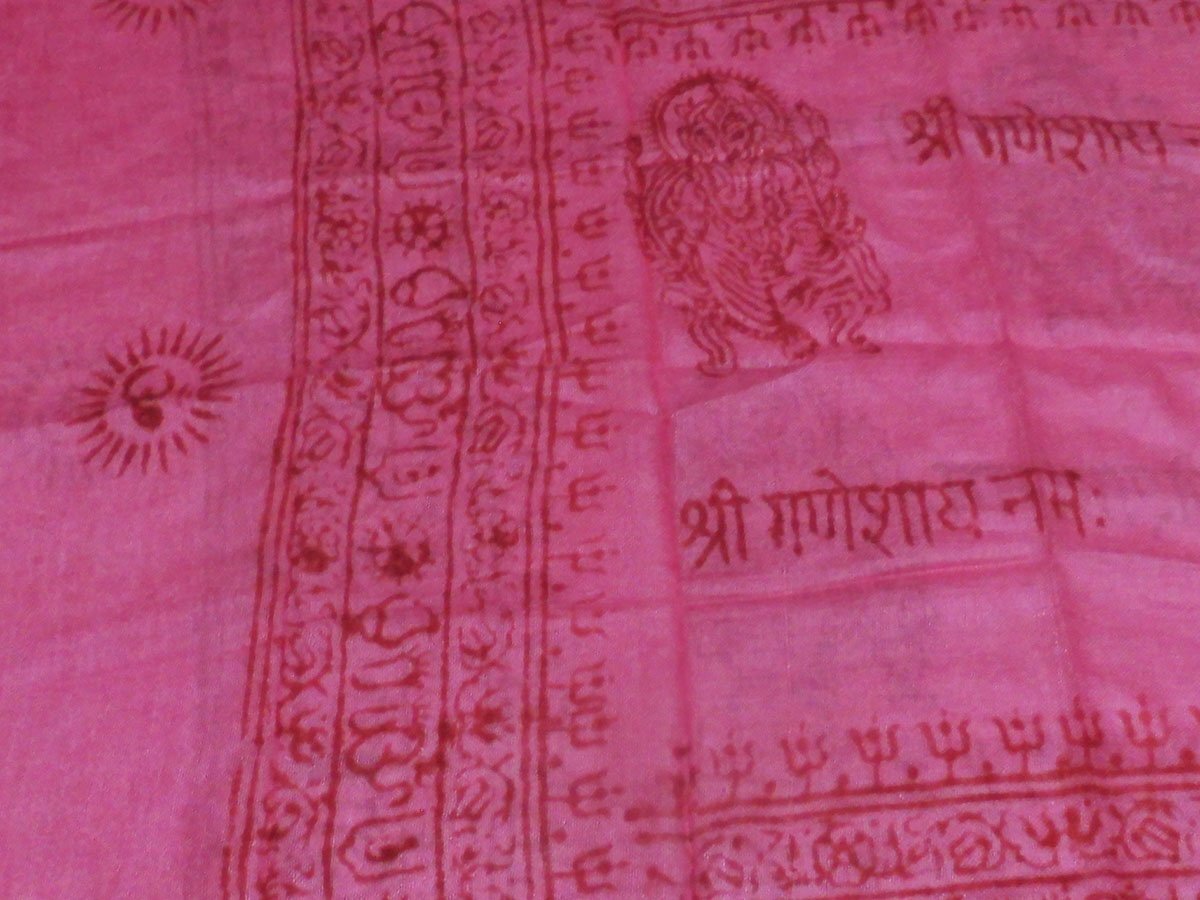 श्री गणेशाय
श्री गणेशाय नमः